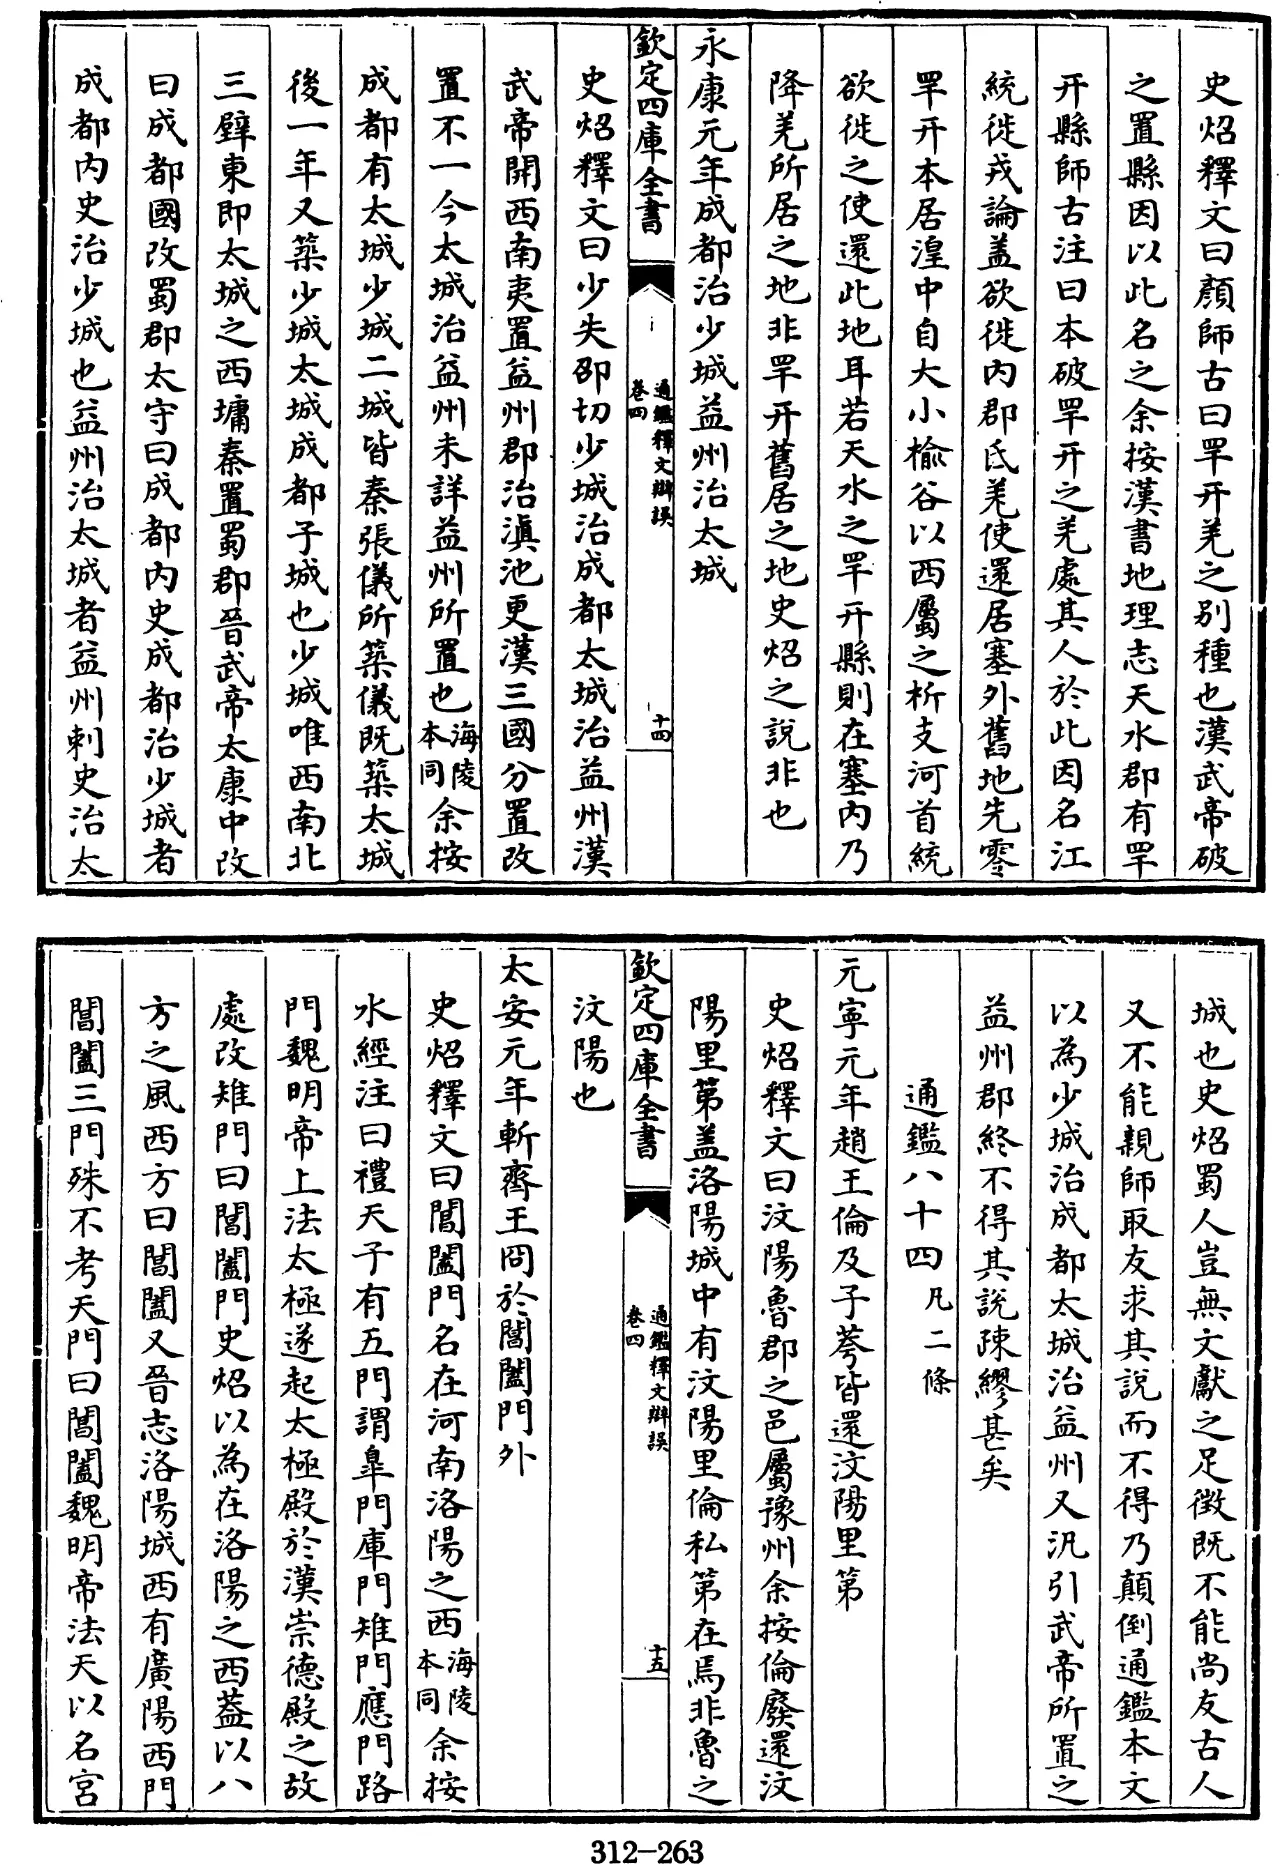 史炤釋文曰顏師古曰罕幵羌之别種也漢武帝破
之置縣因以此名之余按漢書地理志天水郡有罕
幵縣師古注曰本破罕幵之羌處其人於此因名江
統徙戎論蓋欲徙内郡氐羌使還居塞外舊地先零
罕幵本居湟中自大小榆谷以西屬之析支河首統
欲徙之使還此地耳若天水之罕幵縣則在塞内乃
降羌所居之地非罕幵舊居之地史炤之說非也
永康元年成都治少城益州治太城
欽定四庫全書
通鑑釋文辯誤
卷四
十四
史炤釋文曰少失卲切少城治成都太城治益州漢
武帝開西南夷置益州郡治滇池更漢三國分置改
置不一今太城治益州未詳益州所置也海陵本同余按
成都有太城少城二城皆秦張儀所築儀既築太城
後一年又築少城太城成都子城也少城唯西南北
三壁東即太城之西墉秦置蜀郡晉武帝太康中改
曰成都國改蜀郡太守曰成都内史成都治少城者
成都内史治少城也益州治太城者益州刺史治太
城也史炤蜀人豈無文獻之足徴既不能尚友古人
又不能親師取友求其說而不得乃顛倒通鑑本文
以為少城治成都太城治益州又汎引武帝所置之
益州郡終不得其說疎繆甚矣
通鑑八十四凡二條
元寧元年趙王倫及子荂皆還汶陽里第
史炤釋文曰汶陽魯郡之邑屬豫州余按倫廢還汶
陽里第蓋洛陽城中有汶陽里倫私第在焉非魯之
欽定四庫全書
通鑑釋文辯誤
卷四
十五
汶陽也
太安元年斬齊王冏於閶闔門外
史炤釋文曰閶闔門名在河南洛陽之西海陵本同余按
水經注曰禮天子有五門謂臯門庫門雉門應門路
門魏明帝上法太極遂起太極殿於漢崇德殿之故
處改雉門曰閶闔門史炤以為在洛陽之西葢以八
方之風西方曰閶闔又晉志洛陽城西有廣陽西門
閶闔三門殊不考天門曰閶闔魏明帝法天以名宮
312-263